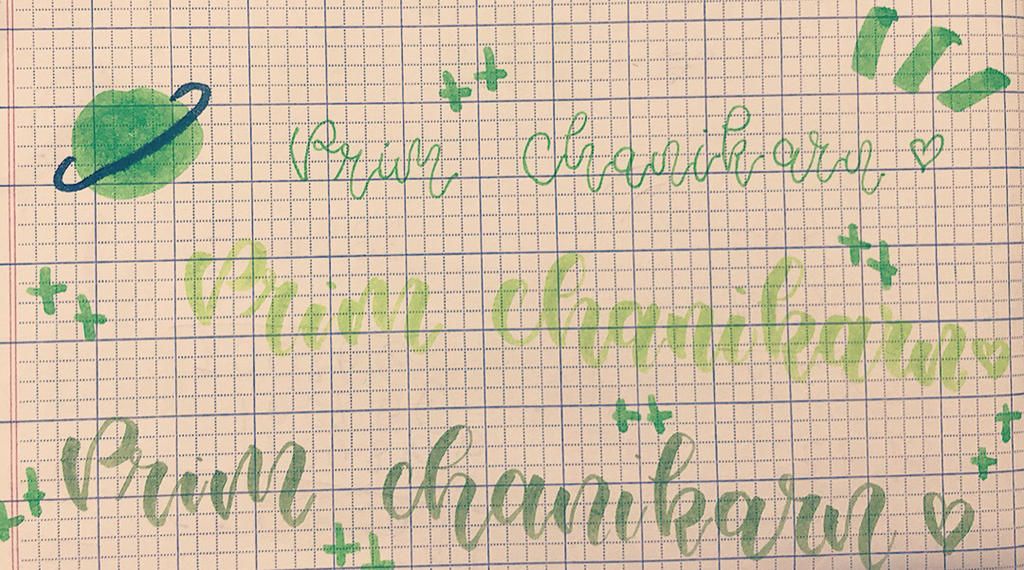 Prim Chanikarn ♡
Prim chanikarn ♡
Prim chanikarn ♡